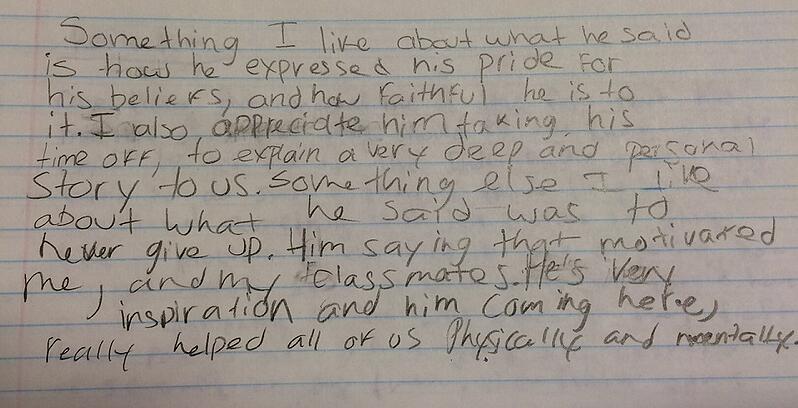 Something I like about what he said
is how he expressed his pride for
his beliefs, and how faithful he is to
it. I also appreciate him taking his
time off, to explain a very deep and personal
story to us. Something else I like
about what he said was to
never give up. Him saying that motivated
me, and my classmates. He's very
inspiration and him coming here,
really helped all of us Physically and mentally.